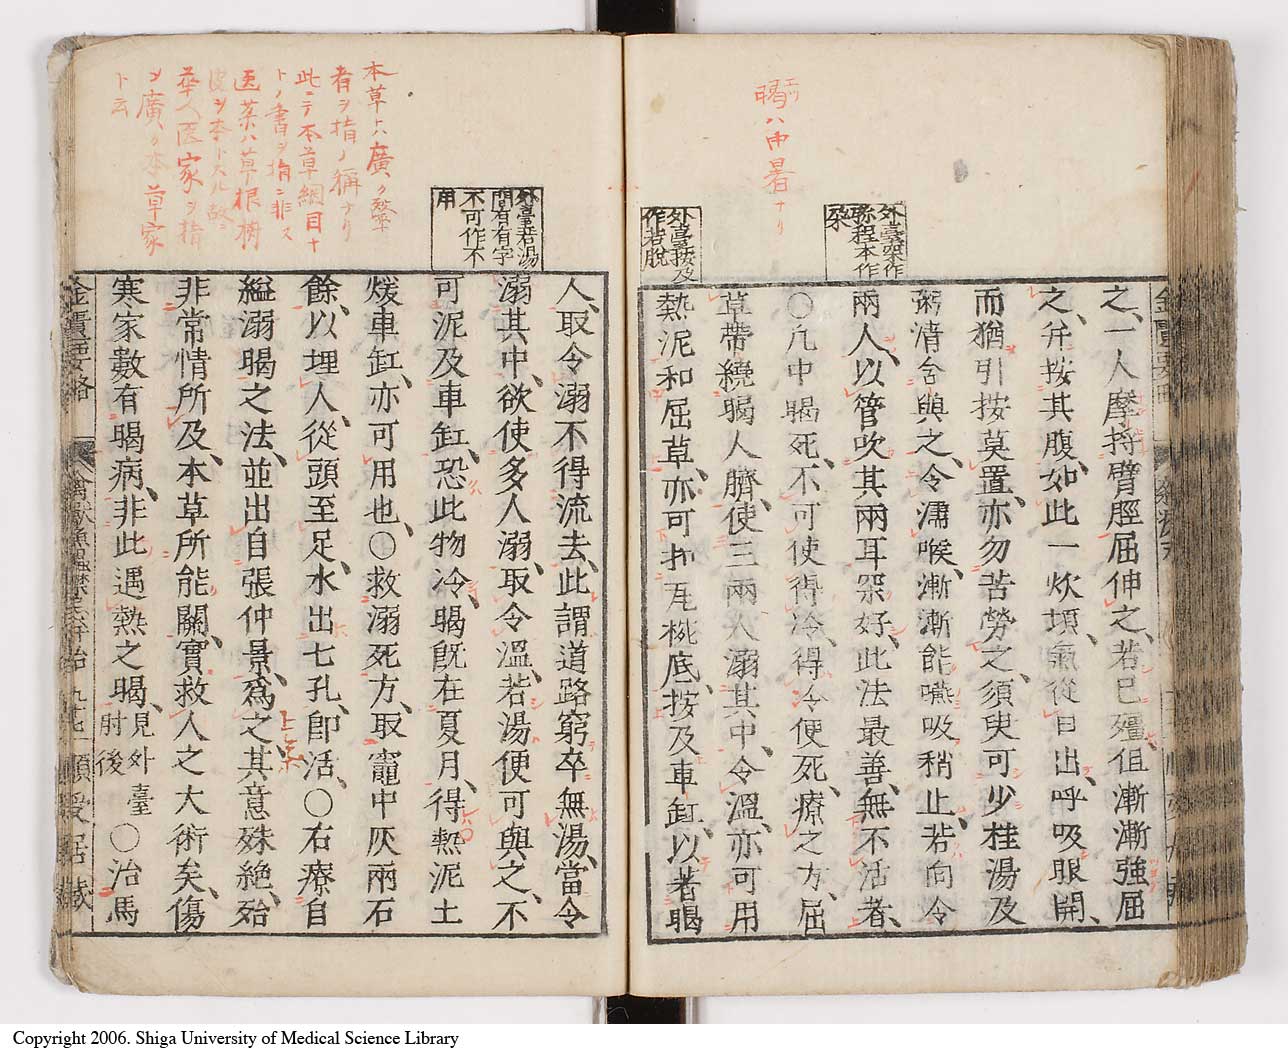 暍ハ中暑ナリ
外臺罙作
弥程本作
突
外臺按及
作若脫
之、一人摩捋臂脛屈伸之、若已殭但漸漸強屈
之、并按其腹、如此一炊頃、氣從口出、呼吸眼開、
而猶引按莫置、亦勿苦勞之、須臾可少桂湯及
粥清含與之、令濡喉、漸漸能嚥及稍止、若向令
兩人、以管吹其兩耳罙好、此法最善、無不活者、
○凡中暍死、不可使得冷、得冷便死、療之方、屈
草帶繞暍人臍、使三兩人溺其中、令溫、亦可用
熱泥和屈草、亦可扣瓦椀底、按及車缸、以著暍
本草ハ廣ク藥
者ヲ指ノ稱ナリ
此ニテ本草綱目ナ
トノ書ヲ指ニ非ス
医菜ハ草根樹
皮ヲ本トスル故ニ
華人医家ヲ指
ヲ廣ク本草家
ト云
外臺若湯
間有有字
不可作不
用
人、取令溺不得流去、此謂道路窮卒無湯、當令
溺其中、欲使多人溺、取令溫、若湯便可與之、不
可泥及車缸、恐此物冷、暍既在夏月、得熱泥土
煖車缸、亦可用也、○救溺死方、取竈中灰兩石
餘、以埋人、從頭至足、水出七孔、即活、○右療自
縊溺暍之法、並出自張仲景、為之、其意殊絶、殆
非常情所及、本草所能關、實救人之大術矣、傷
寒家數有暍病、非此遇熱之暍、見外臺肘後 ○治馬
Copyright 2006. Shiga University of Medical Science Library